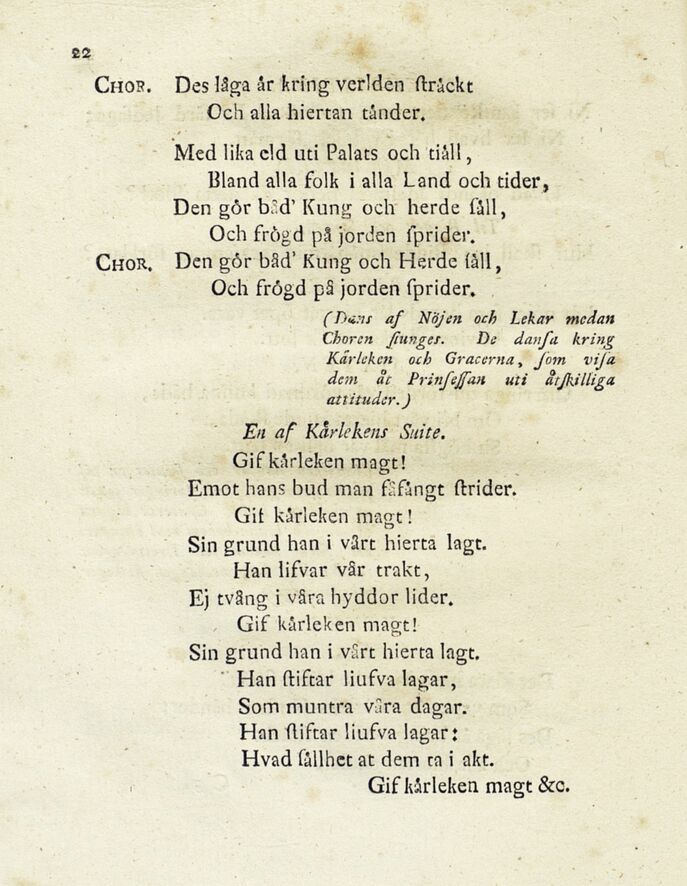 22
CHOR. Des låga år kring verlden ſtråckt
Och alla hiertan tånder.
Med lika eld uti Palats och tiåll,
Bland alla folk i alla Land och tider,
Den gôr båd' Kung och herde ſåll,
Och frôgd på jorden ſprider.
CHOR. Den gôr båd' Kung och Herde ſåll,
Och frôgd på jorden ſprider.
(Dans af Nöjen och Lekar medan
Choren ſiunges. De danſa kring
Kårleken och Gracerna, ſom viſa
dem åt Prinſeſſan uti åtſkilliga
attituder.)
En af Kårlekens Suite.
Gif kårleken magt!
Emot hans bud man fåfångt ſtrider.
Gif kårleken magt!
Sin grund han i vårt hierta lagt.
Han lifvar vår trakt,
Ej tvång i våra hyddor lider.
Gif kårleken magt!
Sin grund han i vårt hierta lagt.
Han ſtiftar liufva lagar,
Som muntra våra dagar.
Han ſtiftar liufva lagar:
Hvad ſållhet at dem ta i akt.
Gif kårleken magt &c.